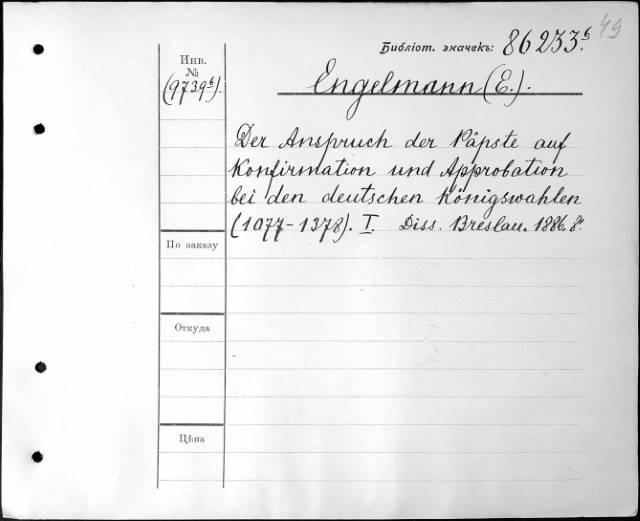 49
Библіот. значекъ: 86233ᵇ.
Инв.
№
(9739ᵇ).
Engelmann (E.).
Der Anspruch der Päpste auf
Konfirmation und Approbation
bei den deutschen Königswahlen
(1077-1378). I. Diss. Breslau. 1886. 8°.
По заказу
Откуда
Цѣна